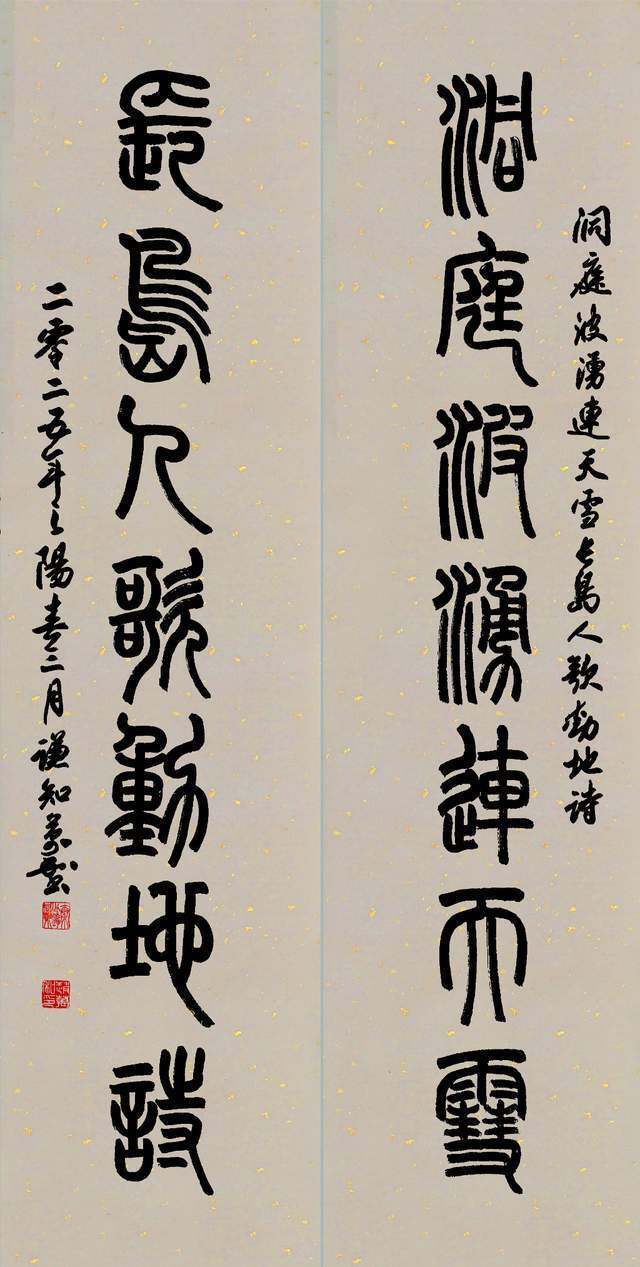 洞庭波湧連天雪長島人歌動地詩
洞庭波湧連天雪
長島人歌動地詩
二零二五年之陽春二月謙知